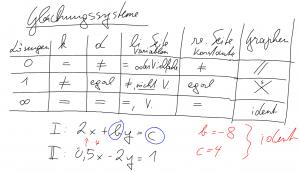 Gleichungssysteme
Lösungen k d li. Seite Variablen re. Seite Konstante Graphen
0 = ≠ = oder Vielfache ≠ //
1 ≠ egal ≠, nicht V. egal X
∞ = = =, V. = ident
I: 2x + by = c b = -8
II: 0,5x - 2y = 1 c = 4 ident